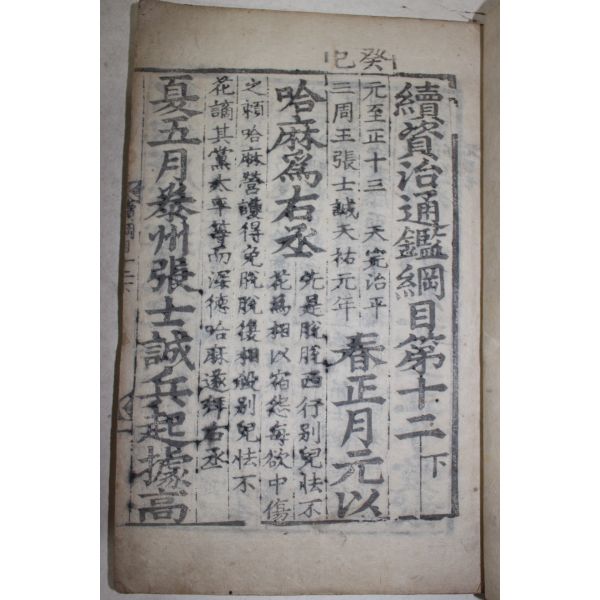 癸巳
續資治通鑑綱目第十二下
元至正十三　天完治平
三周王張士誠天祐元年
春正月元以
哈麻爲右丞
先是脫脫西行別兒怯不
花爲相以宿怨每欲中傷
之賴哈麻營護得免脫脫復相貶別兒怯不
花謫其黨太平等而深德哈麻遂拜右丞
夏五月泰州張士誠兵起據高